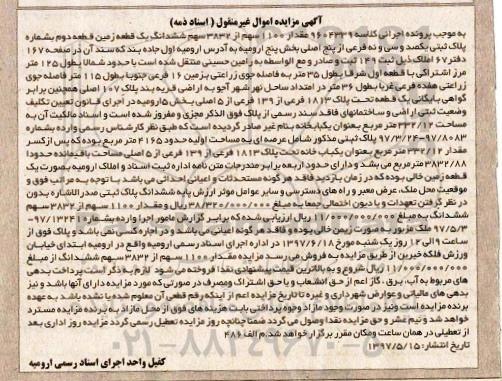 آگهی مزایده اموال غیرمنقول ( اسناد ذمه)
به موجب پرونده اجرائی کلاسه ۹۶۰۴۳۳۹ مقدار ۱۱۰۰ سهم از ۳۸۳۲ سهم ششدانگ یک قطعه زمین قطعه دوم بشماره
پلاک ثبتی یکصد و سی و نه فرعی از پنج اصلی بخش پنج ارومیه به آدرس ارومیه اول جاده بند که سند آن در صفحه ۱۶۷
دفتر ۶۷ املاک ذیل ثبت ۱۴۹ ثبت و صادر و مع الواسطه به رامین حسینی منتقل شده است با حدود شمالا بطول ۱۲۵ متر
مرز اشتراکی با قطعه اول شرقا بطول ۳۵ متر به فاصله جوی زراعتی بزمین ۱۶ فرعی جنوبا بطول ۱۱۵ متر فاصله جوی
زراعتی هفده فرعی غربا بطول ۳۶ متر در امتداد ساحل نهر شهر آجو به اراضی قریه بند پلاک ۱۰۷ اصلی همچنین برابر
گواهی بایگانی یک قطعه تحت پلاک ۱۸۱۳ فرعی از ۱۳۹ فرعی از ۵ اصلی بخش ۵ ارومیه در اجرای قانون تعیین تکلیف
وضعیت ثبتی اراضی و ساختمانهای فاقد سند رسمی از پلاک فوق الذکر مجزی و مفروز شده است و اسناد مالکیت آن به
مساحت ۳۳۲/۱۲ متر مربع بعنوان یکبابخانه بنام غیر صادر گردیده است که طبق نظر کارشناس رسمی وارده بشماره
۹۷/۸۰۸۳-۹۷/۳/۲۴ پلاک ثبتی مذکور شامل عرصه ای به مساحت اولیه حدود ۴۱۶۵ متر مربع بوده که پس از کسر
مقدار ۳۳۲/۱۲ متر مربع بعنوان یکباب خانه تحت پلاک ۱۸۱۳ فرعی از ۱۳۹ فرعی از ۵ اصلی مساحت باقیمانده حدودا
۳۸۳۲/۸۸ مترمربع می باشد و دارای حدود اربعه برابر مندرجات متن نامه اداره ثبت اسناد و املاک ارومیه بصورت یک
قطعه زمین خالی بوده که در زمان بازدید فاقد هر گونه مستحدثات و اعیانی احداثی می باشد با توجه به مراتب فوق و
موقعیت محل ملک، عرض معبر و راه های دسترسی و سایر عوامل موثر ارزش پایه ششدانگ پلاک ثبتی صدر الاشاره بدون
در نظر گرفتن تعهدات و یا دیون احتمالی جمعا به مبلغ ۳۸/۳۲۰/۰۰۰/۰۰۰ ریال و مقدار ۱۱۰۰ سهم از ۳۸۳۲ سهم
ششدانگ به مبلغ ۱۱/۰۰۰/۰۰۰/۰۰۰ ریال ارزیابی شده که برابر گزارش مامور اجرا وارده بشماره ۹۷/۱۳۲۴۱-
۹۷/۵/۳ ملک مزبور به صورت زمین خالی بوده و فاقد هر گونه اعیانی می باشد و در اجاره کسی نمی باشد و پلاک فوق از
ساعت ۹ الی ۱۲ روز یک شنبه مورخ ۱۳۹۷/۶/۱۸ در اداره اجرای اسناد رسمی ارومیه واقع در ارومیه ابتدای خیابان
ورزش فلکه خیرین از طریق مزایده به فروش می رسد مزایده مقدار ۱۱۰۰ سهم از ۳۸۳۲ سهم ششدانگ از مبلغ
۱۱/۰۰۰/۰۰۰/۰۰۰ ریال شروع و به بالاترین قیمت پیشنهادی نقدا فروخته می شود لازم به ذکر است پرداخت بدهی
های مربوط به آب، برق، گاز اعم از حق انشعاب و یا حق اشتراک ومصرف در صورتی که مورد مزایده دارای آنها باشد و نیز
بدهی های مالیاتی و عوارض شهرداری و غیره تا تاریخ مزایده اعم از اینکه رقم قطعی آن معلوم شده یا نشده باشد به عهده
برنده مزایده است ونیز در صورت وجود مازاد وجوه پرداختی بابت هزینه های فوق از محل مازاد به برنده مزایده مسترد
خواهد شد و نیم عشر و حق مزایده نقدا وصول می گردد ضمنا چنانچه روز مزایده تعطیل رسمی گردد مزایده روز اداری بعد
از تعطیلی در همان ساعت ومکان مقرر برگزار خواهد شد.م الف ۴۸۶
تاریخ انتشار: ۱۳۹۷/۵/۱۵
کفیل واحد اجرای اسناد رسمی ارومیه
۰۲۱-۸۸۳۴۹۶۷۰